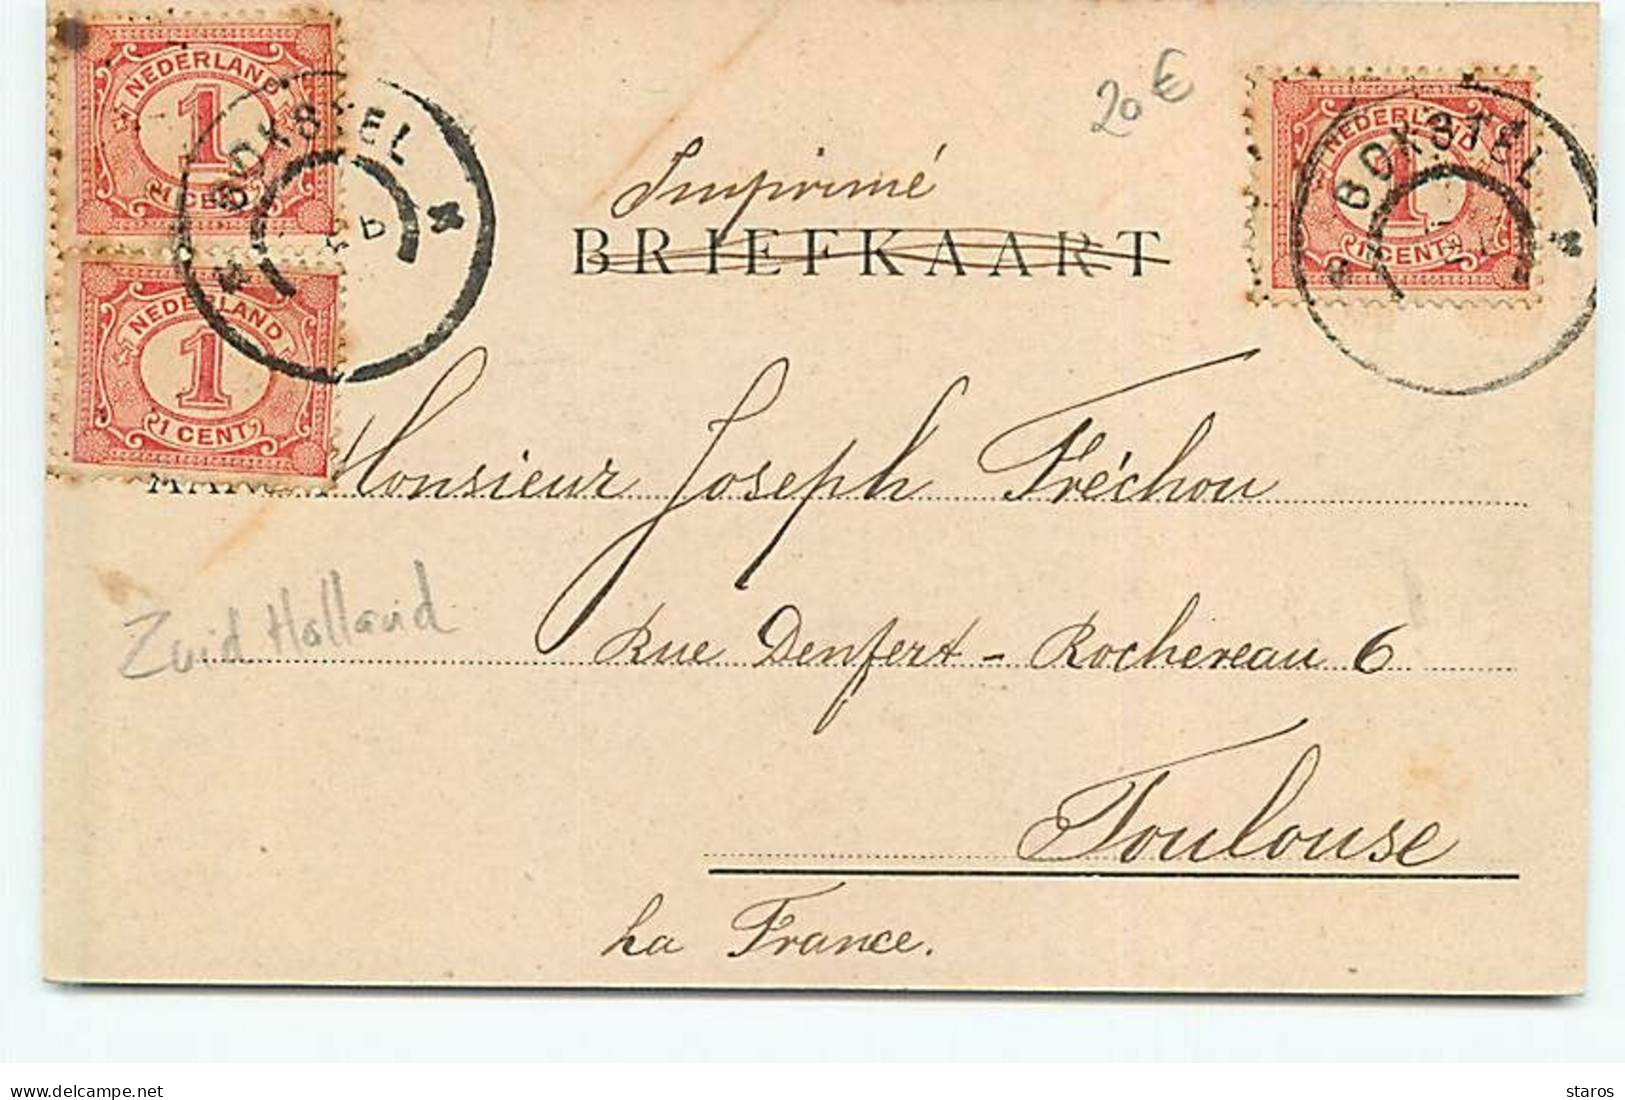 NEDERLAND
1
1 CENT
NEDERLAND
1
1 CENT
BOKSTEL
20 €
NEDERLAND
1
1 CENT
BOKSTEL
Imprimé
BRIEFKAART
Monsieur Joseph Fréchou
Zuid Holland
Rue Denfert - Rochereau 6
Toulouse
La France.
www.delcampe.net
staros